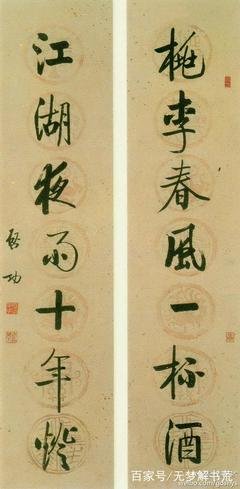 桃李春風一杯酒
江湖夜雨十年燈
啓功
百家号/无梦解书荒